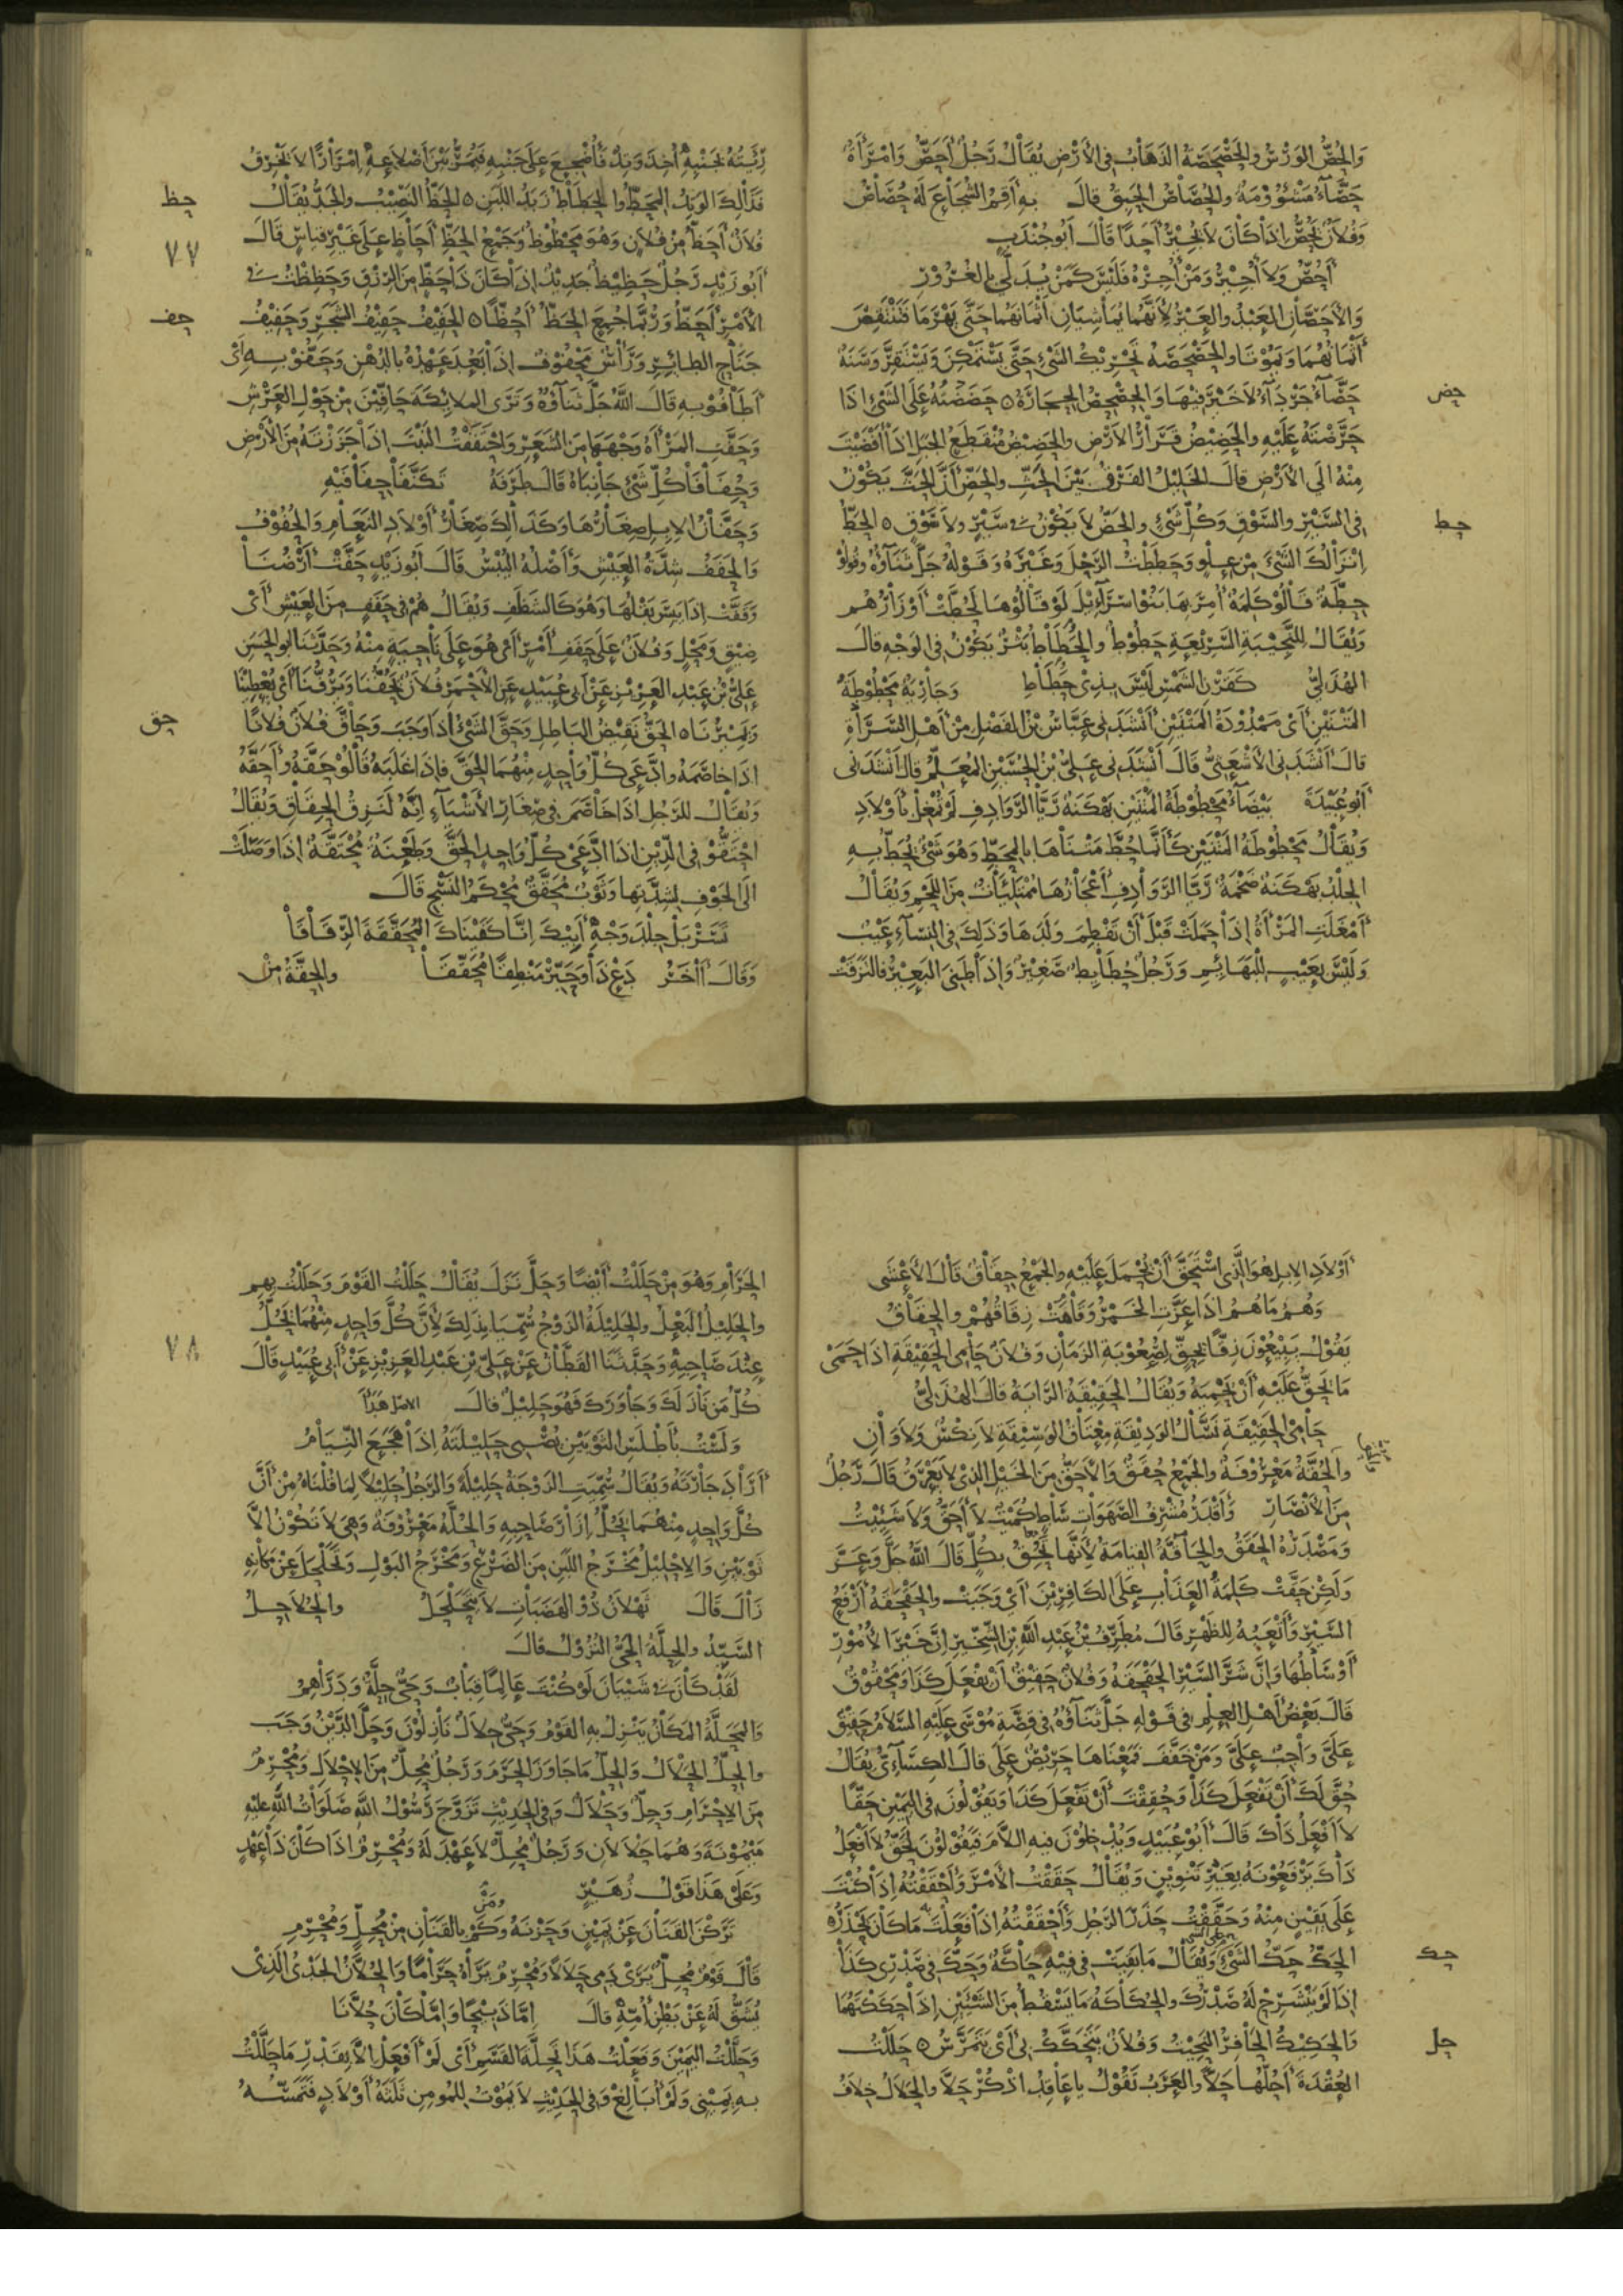 وَالحُصُّ الوَرْسُ والحَصْحَصَةُ الذَهَابُ في الأَرْضِ يُقَالُ رَجُلٌ أَحَصُّ وَامْرَأَةٌ
حَصَّآءُ مَشْؤُوْمَةٌ والحُصَاصُ الحَبِقُ قالَ بِهِ أَقِمُ الشُجَاعَ لَهُ حُصَاصٌ
وَفُلاَنٌ يَحُصُّ اذَا كَانَ لاَ يُجِيْرُ أَحَدًا قَالَ أَبُو جُنْدَبٍ
أَحُصُّ وَلاَ أُجِيْرُ وَمَنْ أُجِرْهُ فَلَيْسَ كَمَنْ يُدَلَّي بِالغُرُوْرِ
وَالأَحَصَّانِ العَبْدُ والعَيْرُ لأَنَّهُمَا يُمَاشِيَانِ أَثْمَانَهُمَا حَتَّى يَهْرَمَا فَتَنْتَقِصَ
أَثْمَانُهُمَا وَيَمُوْتَا والحَصْحَصَةُ تَحْرِيْكُ الشَيْءِ حَتَّى يَسْتَمْكِنَ وَيَسْتَقِرَّ وَسَنَةٌ
حَصَّآءُ جَرْدَآءُ لاَ خَيْرَ فِيْهَا وَالحِصْحِصُ الحِجَارَةُ ه حَضَضْتُهُ عَلَى الشَيْءِ اذَا
حض
حَرَّضْتَهُ عَلَيْهِ والحَضِيْضُ قَرَارُ الأَرْضِ والحَضِيْضُ مُنْقَطَعُ الجَبَلِ اذَا أَفْضَيْتَ
مِنْهُ الَى الأَرْضِ قالَ الخَلِيْلُ الفَرْقُ بَيْنَ الحَثِّ والحَضِّ أَنَّ الحَثَّ يَكُوْنُ
فِي السَيْرِ والسَوْقِ وَكُلِّ شَيْءٍ والحَضُّ لاَ يَكُوْنُ في سَيْرٍ ولاَ سَوْقٍ ه الحَطُّ
حط
اِنْزَالُكَ الشَيْءَ مِنْ عِلْوٍ وَحَطَطْتُ الرَحْلَ وَغَيْرَهُ وَقَوْلُهُ جَلَّ ثَنَاؤُهُ وقُولُوْا
حِطَّةٌ قَالُوْ كَلِمَةٌ أُمِرَ بِهَا بَنُوْا اسْرَآئِيْلَ لَوْ قَالُوْهَا لَحُطَّتْ أَوْزَارُهُمْ
وَيُقَالُ لِلنَجِيْبَةِ السَرِيْعَةِ حَطُوْطٌ والحَطَاطُ بَثْرٌ يَكُوْنُ في الوَجْهِ قالَ
الهُذَلِيُّ كَقَرْنِ الشَمْسِ لَيْسَ بِذِيْ حَطَاطِ وَجَارِيَةٌ مَحْطُوْطَةُ
المَتْنَيْنِ أَيْ مَمْدُوْدَةُ المَتْنَيْنِ أَنْشَدَنِي عَبَّاسُ بْنُ الفَضْلِ مِنْ أَهْلِ السَرَاةِ
قَالَ أَنْشَدَنِي الأَشْعَثِيُّ قَالَ أَنْشَدَنِي عَلِيُّ بْنُ الحُسَيْنِ المُعَلِّمُ قالَ أَنْشَدَنِي
أَبُو عُبَيْدَةَ بَيْضَآءُ مَحْطُوْطَةُ المَتْنَيْنِ بَهْكَنَةٌ رَيَّا الرَوَادِفِ لَمْ تُمْغِلْ بأَوْلاَدِ
وَيُقَالُ مَحْطُوْطَةُ المَتْنَيْنِ كَأَنَّمَا حُطَّ مَتْنَاهَا بِالمِحَطِّ وَهُوَ شَيْءٌ يُحَطُّ بِهِ
الجِلْدُ بَهْكَنَةٌ ضَخْمَةٌ رَيَّا الرَوَادِفِ أَعْجَازُهَا مُمْتَلِئَاتٌ مِنَ اللَحْمِ وَيُقَالُ
أَمْغَلَتِ المَرْأَةُ اِذَا حَمَلَتْ قَبْلَ أَنْ تَفْطِمَ وَلَدَهَا وَذَلِكَ في النِسَآءِ عَيْبٌ
وَلَيْسَ بِعَيْبٍ لِلْبَهَائِمِ وَرَجُلٌ حُطَائِطٌ صَغِيْرٌ وَاِذَا طَنِيَ البَعِيْرُ فَالتَزَقَتْ
رِئَتُهُ بِجَنْبِهِ أُخِذَ وَتِدٌ فَأُضْجِعَ عَلَى جَنْبِهِ فَيُمَرُّ بَيْنَ أَضْلاَعِهِ اِمْرَارًا لاَ يَخْرِقُ
فَذَالِكَ الوَتِدُ المِحَطُّ والحَطَاطُ زَبَدُ اللَبَنِ ه الحَظُّ النَصِيْبُ والجَدُّ يُقَالُ
حظ
فُلاَنٌ أَحَظُّ مِنْ فُلاَنٍ وَهُوَ مَحْظُوْظٌ وَجَمْعُ الحَظِّ أَحَاظٍ عَلَى غَيْرِ قِيَاسٍ قَالَ
٧٧
أَبُو زَيْدٍ رَجُلٌ حَظِيْظٌ جَدِيْدٌ اِذَا كَانَ ذَا حَظٍّ مِنَ الرِزْقِ وَحَظِظْتُ في
الأَمْرِ أَحَظُّ وَرُبَّمَا جُمِعَ الحَظُّ أَحُظًّا ه الحَفِيْفُ حَفِيْفُ الشَجَرِ وَحَفِيْفُ
حف
جَنَاحِ الطَائِرِ وَرَأْسٌ مَحْفُوْفٌ اِذَا بَعُدَ عَهْدُهُ بِالدُهْنِ وَحَفُّوْ بِهِ أَيْ
أَطَافُوْ بِهِ قَالَ اللَّهُ جَلَّ ثَنَآؤُهُ وَتَرَى المَلاَئِكَةَ حَافِّيْنَ مِنْ حَوْلِ العَرْشِ
وَحَفَّتِ المَرْأَةُ وَجْهَهَا مِنَ الشَعَرِ وَاحْتَفَفْتُ النَبْتَ اِذَا جَزَزْتَهُ مِنَ الأَرْضِ
وَحِفَافَا كُلِّ شَيْءٍ جَانِبَاهُ قَالَ طَرَفَةُ تَكَنَّفَا حِفَافَيْهِ
وَحَفَّانُ الاِبِلِ صِغَارُهَا وَكَذَالِكَ صِغَارُ أَوْلاَدِ النَعَامِ وَالحُفُوْفُ
وَالحَفَفُ شِدَّةُ العَيْشِ وَأَصْلُهُ اليُبْسُ قَالَ أَبُو زَيْدٍ حَفَّتْ أَرْضُنَا
وَقَفَّتْ اِذَا يَبِسَ بَقْلُهَا وَهُوَ كَالشَظَفِ وَيُقَالُ هُمْ في حَفَفٍ مِنَ العَيْشِ أَيْ
ضِيْقٍ وَمَحْلٍ وَفُلاَنٌ عَلَى حَفَفِ أَمْرٍ أَيْ هُوَ عَلَى نَاحِيَةٍ مِنْهُ وَحَدَّثَنَا أَبُو الحَسَنِ
عَلِيُّ بْنُ عَبْدِ العَزِيْزِ عَنْ أَبِي عُبَيْدٍ عَنِ الأَحْمَرِ فُلاَنٌ يَحُفُّنَا وَيَرُفُّنَا أَيْ يُعْطِيْنَا
وَيَمِيْرُنَا ه الحَقُّ نَقِيْضُ البَاطِلِ وَحَقَّ الشَيْءُ اِذَا وَجَبَ وَحَاقَّ فُلاَنٌ فُلاَنًا
حق
اِذَا خَاصَمَهُ وادَّعَى كُلُّ وَاحِدٍ مِنْهُمَا الحَقَّ فَاِذَا غَلَبَهُ قَالُوْ حَقَّهُ وأَحَقَّهُ
وَيُقَالُ لِلرَجُلِ اِذَا خَاصَمَ في صِغَارِ الأَشْيَآءِ اِنَّهُ لَنَزِقُ الحِقَاقِ وَيُقَالُ
احْتَقُّوْ في الدِيْنِ اِذَا ادَّعَى كُلُّ وَاحِدٍ الحَقَّ وَطَعْنَةٌ مُحْتَقَّةٌ اِذَا وَصَلَتْ
الَى الجَوْفِ لِشِدَّتِهَا وَثَوْبٌ مُحَقَّقٌ مُحْكَمُ النَسْجِ قَالَ
تَسَرْبَلْ جِلْدَ وَجْهِ أَبِيْكَ اِنَّا كَفَيْنَاكَ المُحَقَّقَةَ الرِقَاقَا
وَقَالَ الآخَرُ دَعْ ذَا وحَبِّرْ مَنْطِقًا مُحَقَّقَا والحِقَّةُ مِنْ
أَوْلاَدِ الاِبِلِ هُوَ الَّذِي اسْتَحَقَّ أَنْ يُحْمَلَ عَلَيْهِ والجَمْعُ حِقَاقٌ قَالَ الأَعْشَى
وَهُمُ مَا هُمُ اِذَا عَزَّتِ الخَمْرُ وَقَامَتْ زِقَاقُهُمْ والحِقَاقُ
يَقُوْلُ يَبِيْعُوْنَ زِقًّا بِحِقٍّ لِصُعُوْبَةِ الزَمَانِ وَفُلاَنٌ حَامِي الحَقِيْقَةِ اِذَا حَمَى
مَا يَحِقُّ عَلَيْهِ أَنْ يَحْمِيَهُ وَيُقَالُ الحَقِيْقَةُ الرَايَةُ قالَ الهُذَلِيُّ
حَامِيْ الحَقِيْقَةِ نَسَّالُ الوَدِيْقَةِ مِعْتَاقُ الوَسِيْقَةِ لاَ نِكْسٌ وَلاَ وَانِ
والحُقَّةُ مَعْرُوْفَةٌ والجَمْعُ حُقَقٌ وَالأَحَقُّ مِنَ الخَيْلِ الذِيْ لاَ يَعْرَقُ قَالَ رَجُلٌ
مِنَ الأَنْصَارِ وَأَقْدَرُ مُشْرِفُ الصَهَوَاتِ سَاطٍ كُمَيْتٌ لاَ أَحَقُّ وَلاَ شَئِيْتُ
وَمَصْدَرُهُ الحَقَقُ والحَآقَّةُ القِيَامَةُ لأَنَّهَا تَحُقُّ بِكُلٍّ قَالَ اللَّهُ جَلَّ وَعَزَّ
وَلَكِنْ حَقَّتْ كَلِمَةُ العَذَابِ عَلَى الكَافِرِيْنَ أَيْ وَجَبَتْ والحَقْحَقَةُ أَرْفَعُ
السَيْرِ وَأَتْعَبُهُ لِلظَهْرِ قَالَ مُطَرِّفُ بْنُ عَبْدِ اللَّهِ بْنِ الشِخِّيْرِ اِنَّ خَيْرَ الأُمُوْرِ
أَوْسَاطُهَا وَاِنَّ شَرَّ السَيْرِ الحَقْحَقَةُ وَفُلاَنٌ حَقِيْقٌ أَنْ يَفْعَلَ كَذَا وَمَحْقُوْقٌ
قَالَ بَعْضُ أَهْلِ العِلْمِ في قَوْلِهِ جَلَّ ثَنَاؤُهُ في قِصَّةِ مُوْسَى عَلَيْهِ السَلاَمُ حَقِيْقٌ
عَلَيَّ وَاجِبٌ عَلَيَّ وَمَنْ خَفَّفَ فَمَعْنَاهَا حَرِيْصٌ عَلَى قالَ الكِسَآئِيُّ يُقَالُ
حُقَّ لَكَ أَنْ تَفْعَلَ كَذَا وَحُقِقْتَ أَنْ تَفْعَلَ كَذَا وَيَقُوْلُوْنَ في اليَمِيْنِ حَقًّا
لاَ أَفْعَلُ ذَاكَ قَالَ أَبُوْ عُبَيْدٍ وَيُدْخِلُوْنَ فِيهِ اللاَّمَ فَيَقُوْلُوْنَ لَحَقُّ لاَ أَفْعَلُ
ذَاكَ يَرْفَعُوْنَهُ بِغَيْرِ تَنْوِيْنٍ وَيُقَالُ حَقَقْتُ الأَمْرَ وَأَحْقَقْتُهُ اِذَا كُنْتَ
عَلَى يَقِيْنٍ مِنْهُ وَحَقَقْتُ حَذَرَ الرَجُلِ وَأَحْقَقْتُهُ اِذَا فَعَلْتَ مَا كَانَ يَحْذَرُهُ
الحَكُّ حَكُّ الشَيْءِ وَيُقَالُ مَا بَقِيَتْ في فِيْهِ حَاكَّةٌ وَحَكَّ في صَدْرِي كَذَا
حك
اِذَا لَمْ يَنْشَرِحْ لَهُ صَدْرُكَ والحُكَاكَةُ مَا يَسْقُطُ مِنَ الشَيْئَيْنِ اِذَا حَكَكْتَهُمَا
وَالحَكِيْكُ الحَافِرُ النَحِيْتُ وَفُلاَنٌ يَتَحَكَّكُ بِي أَيْ يَتَمَرَّسُ ه حَلَلْتُ
حل
العُقْدَةَ أَحُلُّهَا حَلاًّ والعَرَبُ تَقُوْلُ يا عَاقِدُ اذْكُرْ حَلاًّ والحَلاَلُ خِلاَفُ
الحَرَامِ وَهُوَ مِنْ حَلَلْتُ أَيْضًا وَحَلَّ نَزَلَ يُقَالُ حَلَلْتُ القَوْمَ وَحَلَلْتُ بِهِمْ
والحَلِيْلُ البَعْلُ والحَلِيْلَةُ الزَوْجُ سُمِّيَا بِذَلِكَ لأَنَّ كُلَّ وَاحِدٍ مِنْهُمَا يَحُلُّ
عِنْدَ صَاحِبِهِ وَحَدَّثَنَا القَطَّانُ عَنْ عَلِيِّ بْنِ عَبْدِ العَزِيْزِ عَنْ أَبِي عُبَيْدٍ قَالَ
٧٨
كُلُّ مَن نَازَلَكَ وَجَاوَرَكَ فَهُوَ حَلِيْلٌ قالَ
وَلَسْتُ بِأَطْلَسِ الثَوْبَيْنِ يُصْبِي حَلِيْلَتَهُ اِذَا هَجَعَ النِيَامُ
أَرَادَ جَارَتَهُ وَيُقَالُ سُمِّيَتِ الزَوْجَةُ حَلِيْلَةً وَالرَجُلُ حَلِيْلاً لِمَا قُلْنَاهُ مِنْ أَنَّ
كُلَّ وَاحِدٍ مِنْهُمَا يَحُلُّ اِزَارَ صَاحِبِهِ وَالحُلَّةُ مَعْرُوْفَةٌ وَهِيَ لاَ تَكُوْنُ الاَّ
ثَوْبَيْنِ وَالاِحْلِيْلُ مَخْرَجُ اللَبَنِ مِنَ الضَرْعِ وَمَخْرَجُ البَوْلِ وَتَحَلْحَلَ عَنْ مَكَانِهِ
زَالَ قَالَ ثَهْلاَنُ ذُوْ الهَضَبَاتِ لاَ يَتَحَلْحَلُ والحُلاَحِلُ
السَيِّدُ والحِلَّةُ الحَيُّ النُزُوْلُ قالَ
لَقَدْ كَانَ في شَيْبَانَ لَوْ كُنْتَ عَالِمًا قِبَابٌ وَحَيٌّ حِلَّةٌ وَدَرَاهِمُ
وَالمَحَلَّةُ المَكَانُ يَنْزِلُ بِهِ القَوْمُ وَحَيٌّ حِلاَلٌ نَازِلُوْنَ وَحَلَّ الدَيْنُ وَجَبَ
والحِلُّ الحَلاَلُ وَالحِلُّ مَا جَاوَزَ الحَرَمَ وَرَجُلٌ مُحِلٌّ مِنَ الاِحْلاَلِ وَمُحْرِمٌ
مِنَ الاِحْرَامِ وَحِلٌّ وَحَلاَلٌ وَفي الحَدِيْثِ تَزَوَّجَ رَسُوْلُ اللَّهِ صَلَوَاتُ اللَّهِ عَلَيْهِ
مَيْمُوْنَةَ وَهُمَا حَلاَلاَنِ وَرَجُلٌ مُحِلٌّ لاَ عَهْدَ لَهُ وَمُحْرِمٌ اِذَا كَانَ ذَا عَهْدٍ
وَعَلَى هَذَا قَوْلُ زُهَيْرٍ
تَرَكْنَ القَنَانَ عَنْ يَمِيْنٍ وَحَزْنَهُ وَكَمْ بِالقَنَانِ مِنْ مُحِلٍّ وَمُحْرِمِ
قَالَ قَوْمٌ مُحِلٌّ يَرَى دَمِي حَلاَلاً وَمُحْرِمٌ يَرَاهُ حَرَامًا وَالحُلاَّنُ الجَدْيُ الَّذِيْ
يُشَقُّ لَهُ عَنْ بَطْنِ أُمِّهِ قالَ اِمَّا ذَبِيْحًا وَاِمَّا كَانَ حُلاَّنَا
وَحَلَّلْتُ اليَمِيْنَ وَفَعَلْتُ هَذَا تَحِلَّةَ القَسَمِ أَيْ لَمْ أَفْعَلْ الاَّ بِقَدْرِ مَا حَلَّلْتُ
بِهِ يَمِيْنِي وَلَمْ أُبَالِغْ وَفي الحَدِيْثِ لاَ يَمُوْتُ لِلمُؤْمِنِ ثَلَثَةُ أَوْلاَدٍ فَتَمَسَّهُ